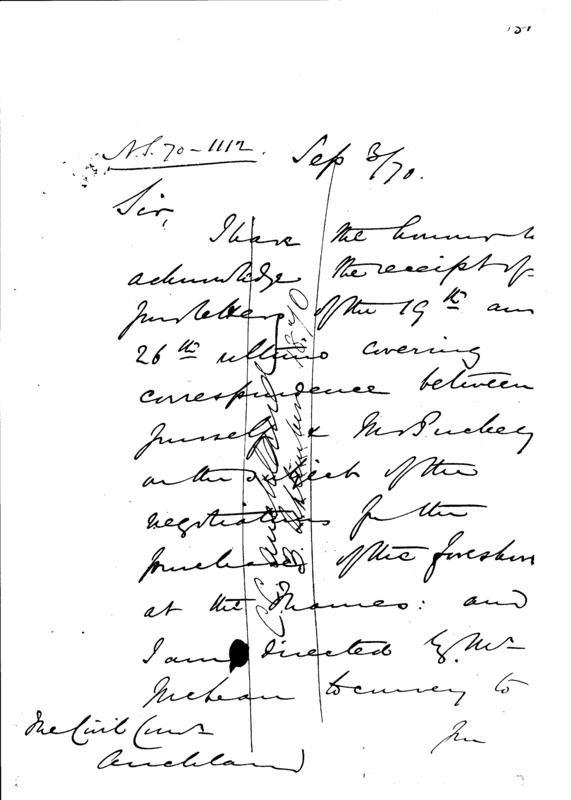 N.S. 70-1112. Sep 3/70.
Sir,
I have the honor to
acknowledge the receipt of
your letters of the 19th and
26th ultimo covering
correspondence between
yourself & Mr Puckey
on the subject of the
negotiations for the
purchase of the foreshore
at the Thames: and
I am directed by Mr
McLean to convey to
you
The Civil Comr
Auckland
C.C. Auckland
3 September 1870